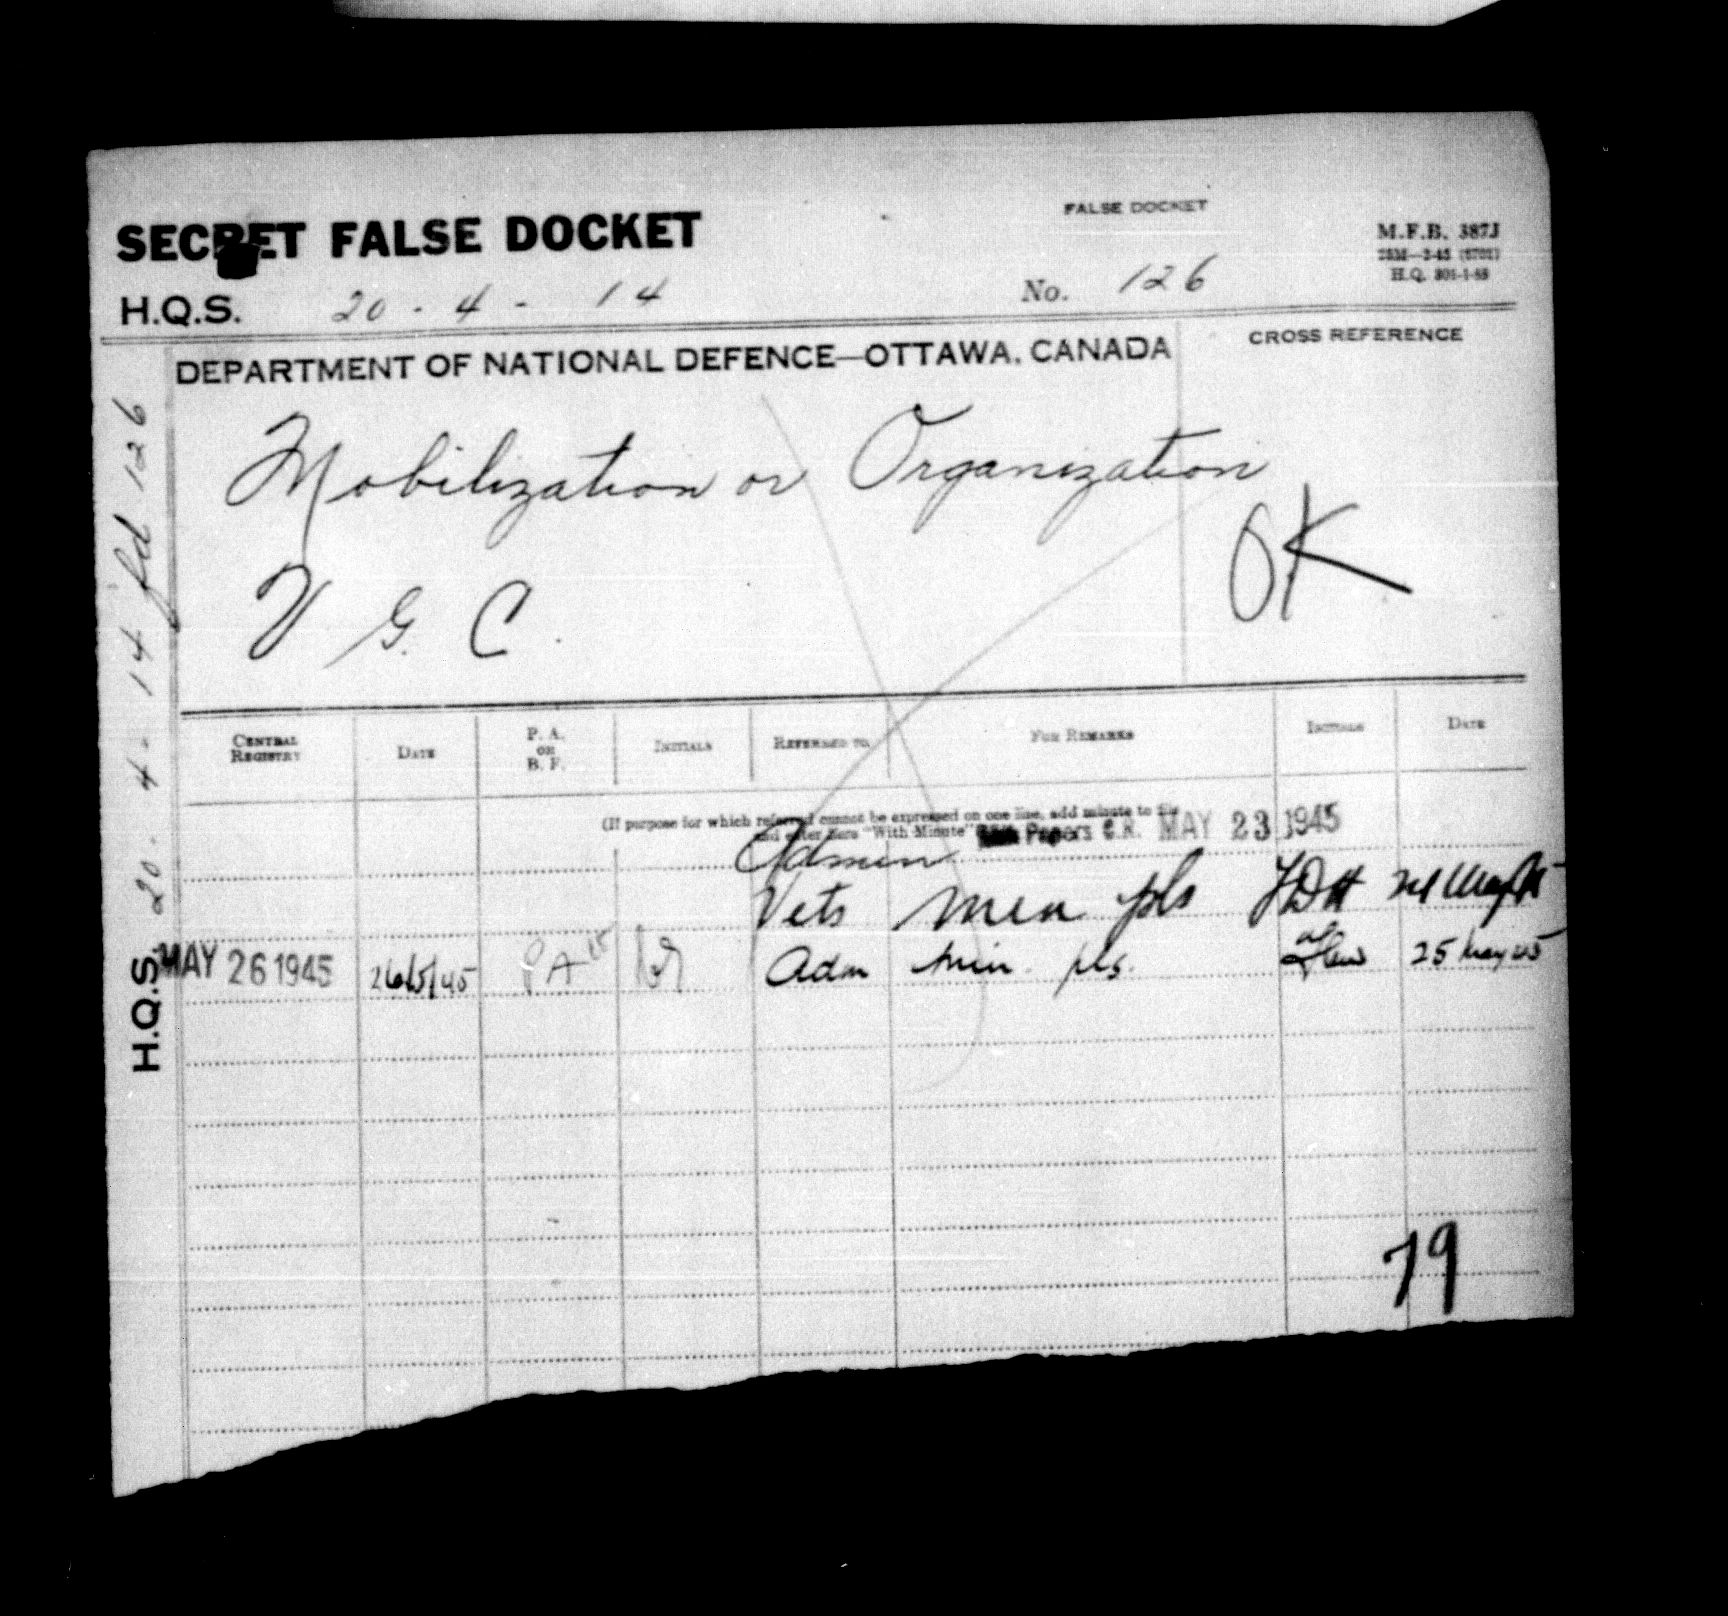 SECRET FALSE DOCKET
FALSE DOCKET
M.F.B. 387J
H.Q.S. 20 - 4 - 14
No. 126
DEPARTMENT OF NATIONAL DEFENCE—OTTAWA, CANADA
CROSS REFERENCE
Mobilization or Organization
V G. C.
OK
CENTRAL REGISTRY
DATE
P. A. OR B. F.
INITIALS
REFERRED TO
FOR REMARKS
INITIALS
DATE
(If purpose for which referred cannot be expressed on one line, add minute to file
and enter here "With Minute"
Papers C.R. MAY 23 1945
Admin
Vets men pls
MAY 26 1945 26/5/45 PA Adm min. pls. 25 May 45
H.Q.S. 20 - 4 - 14 fd 126
79